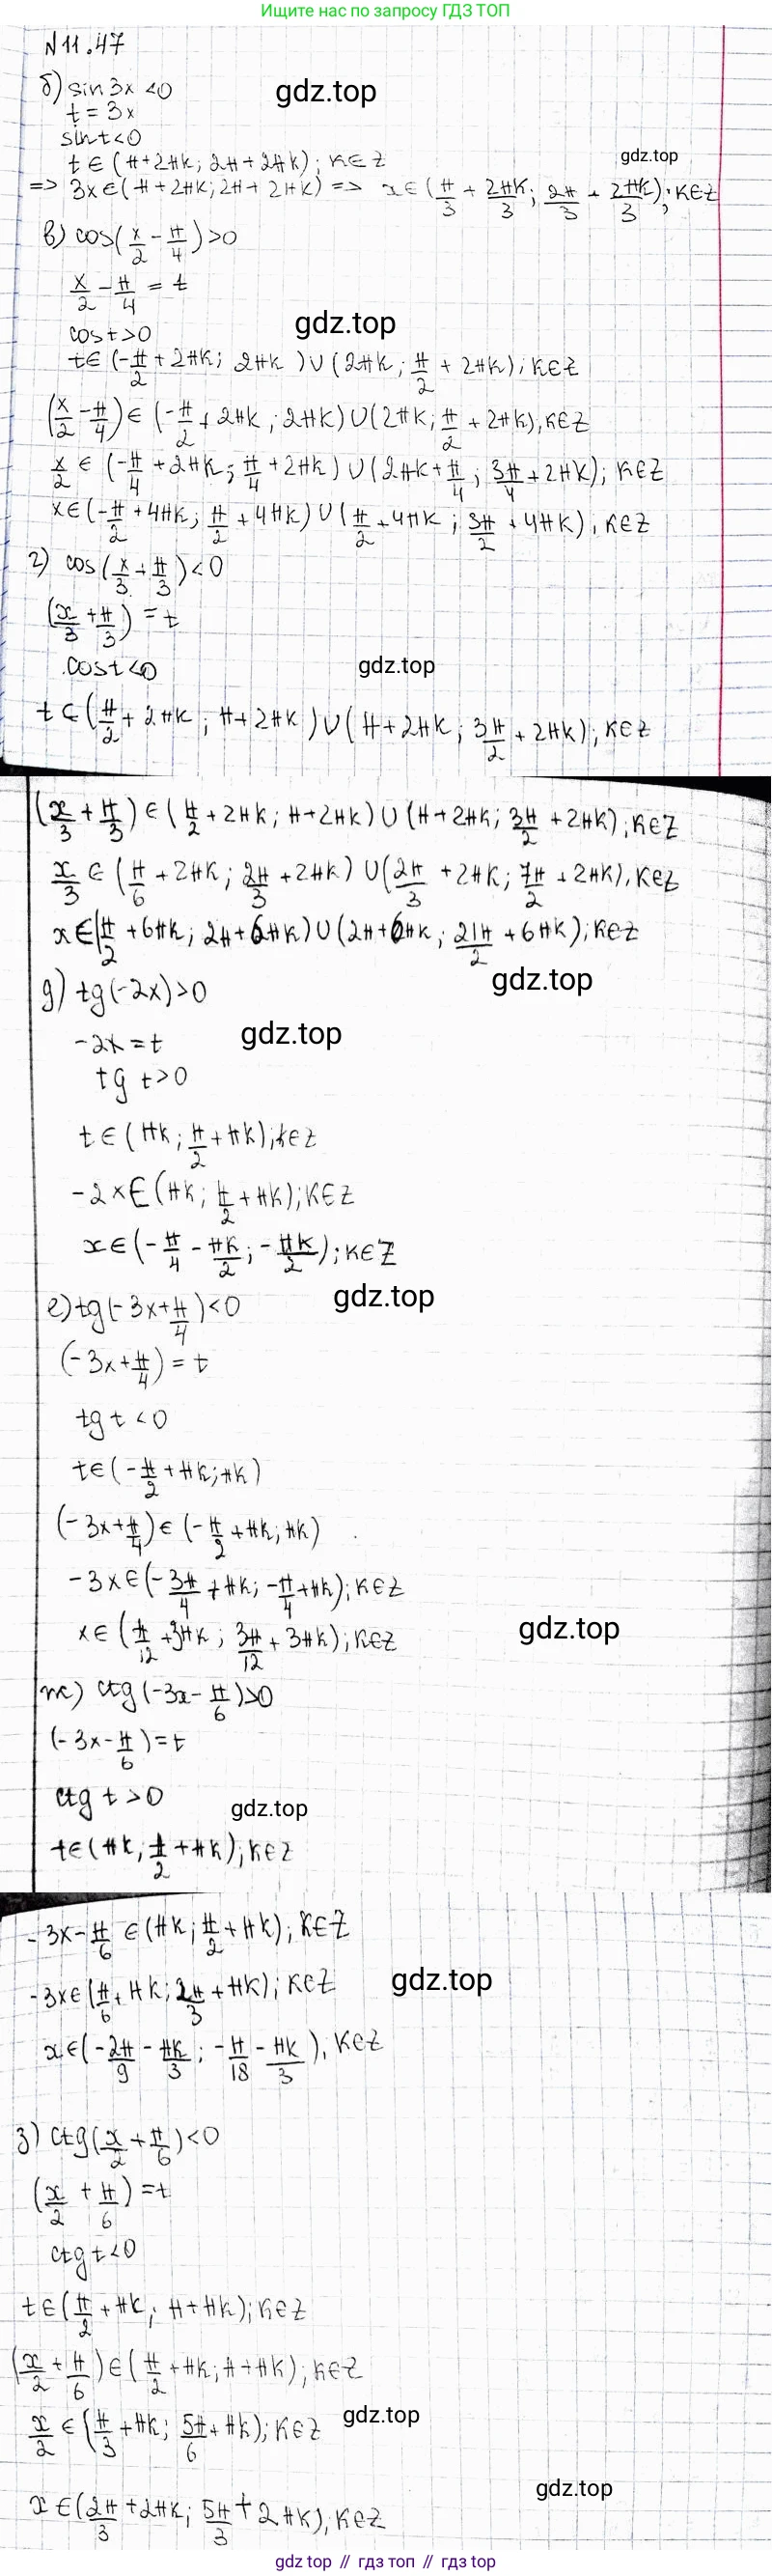 Ищите нас по запросу ГДЗ ТОП
N 11.47
б) sin3x <0
gdz.top
t = 3x
sint<0
t ∈ (π+2πk; 2π+2πk); k∈Z
gdz.top
=> 3x∈(π+2πk; 2π+2πk) => x∈(π/3 + 2πk/3; 2π/3 + 2πk/3); k∈Z
в) cos(x/2 - π/4)>0
x/2 - π/4 = t
gdz.top
cost>0
t∈ (-π/2 + 2πk; 2πk)∪(2πk; π/2 + 2πk); k∈Z
(x/2 - π/4) ∈ (-π/2 + 2πk; 2πk)∪(2πk; π/2 + 2πk), k∈Z
x/2 ∈ (-π/4 + 2πk; π/4 + 2πk)∪(2πk + π/4; 3π/4 + 2πk); k∈Z
x∈(-π/2 + 4πk; π/2 + 4πk)∪(π/2 + 4πk; 3π/2 + 4πk), k∈Z
г) cos(x/3 + π/3)<0
(x/3 + π/3) = t
cost<0
gdz.top
t ∈(π/2 + 2πk; π+2πk)∪(π+2πk; 3π/2 + 2πk); k∈Z
(x/3 + π/3) ∈ (π/2 + 2πk; π+2πk)∪(π+2πk; 3π/2 + 2πk); k∈Z
x/3 ∈ (π/6 + 2πk; 2π/3 + 2πk)∪(2π/3 + 2πk; 7π/2 + 2πk), k∈Z
x∈(π/2 + 6πk; 2π+6πk)∪(2π+6πk; 21π/2 + 6πk); k∈Z
gdz.top
д) tg(-2x)>0
gdz.top
-2x = t
tg t>0
t∈(πk; π/2 + πk); k∈Z
-2x∈(πk; π/2 + πk); k∈Z
x∈(-π/4 - πk/2; -πk/2); k∈Z
е) tg(-3x+π/4)<0
gdz.top
(-3x+π/4) = t
tg t <0
t∈(-π/2 + πk; πk)
(-3x+π/4)∈(-π/2 + πk; πk)
-3x∈(-3π/4 + πk; -π/4 + πk); k∈Z
x∈ (π/12 + 3πk; 3π/12 + 3πk); k∈Z
gdz.top
ж) ctg(-3x - π/6)>0
(-3x - π/6) = t
ctg t >0
gdz.top
t∈(πk; π/2 + πk); k∈Z
-3x - π/6 ∈(πk; π/2 + πk); k∈Z
-3x∈(π/6 + πk; 2π/3 + πk); k∈Z
gdz.top
x∈(-2π/9 - πk/3; -π/18 - πk/3), k∈Z
з) ctg(x/2 + π/6)<0
(x/2 + π/6) = t
ctg t<0
t∈(π/2 + πk; π+πk); k∈Z
(x/2 + π/6)∈(π/2 + πk; π+πk); k∈Z
x/2 ∈(π/3 + πk; 5π/6 + πk); k∈Z
gdz.top
gdz.top
x∈(2π/3 + 2πk; 5π/3 + 2πk), k∈Z
gdz top // гдз топ // gdz top